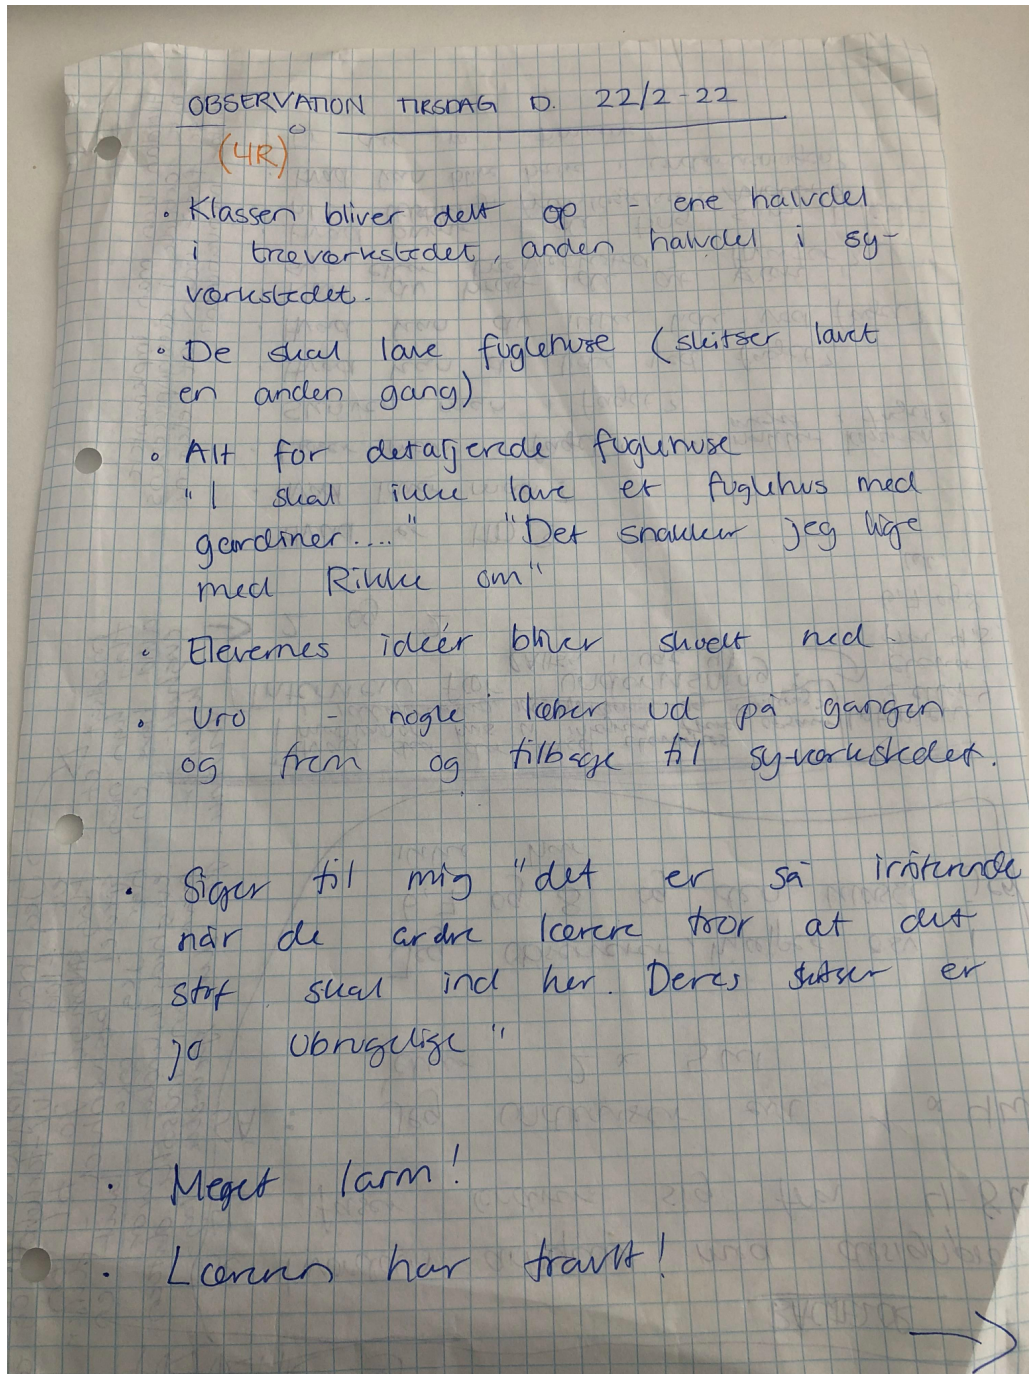 OBSERVATION TIRSDAG D. 22/2-22
(4R)
• Klassen bliver delt op - ene halvdel
i træværkstedet, anden halvdel i sy-
værkstedet.
• De skal lave fuglehuse (skitser lavet
en anden gang)
• Alt for detaljerede fuglehuse
"I skal ikke lave et fuglehus med
gardiner...." "Det snakker jeg lige
med Rikke om"
• Elevernes idéer bliver skudt ned
• Uro - nogle løber ud på gangen
og frem og tilbage til sy-værkstedet.
• Siger til mig "det er så irriterende
når de andre lærere tror at det
stof skal ind her. Deres skitser er
jo ubrugelige"
• Meget larm!
• Læreren har travlt!